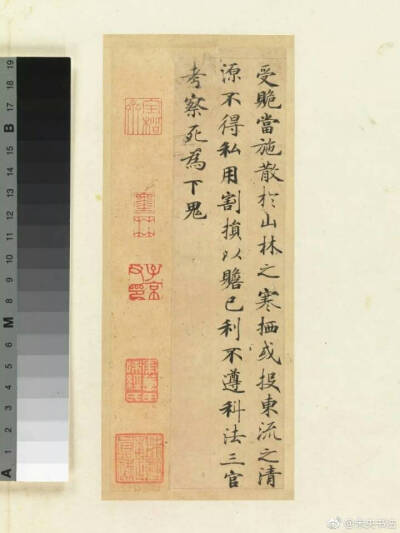 受賄當施散於山林之寒栖或投東流之清
源不得私用割損以贍己利不遵科法三官
考察死為下鬼
子京
19
18
17
16
15
B
14
13
12
11
10
9
8
M
7
6
5
4
3
2
1
A
@未央书法